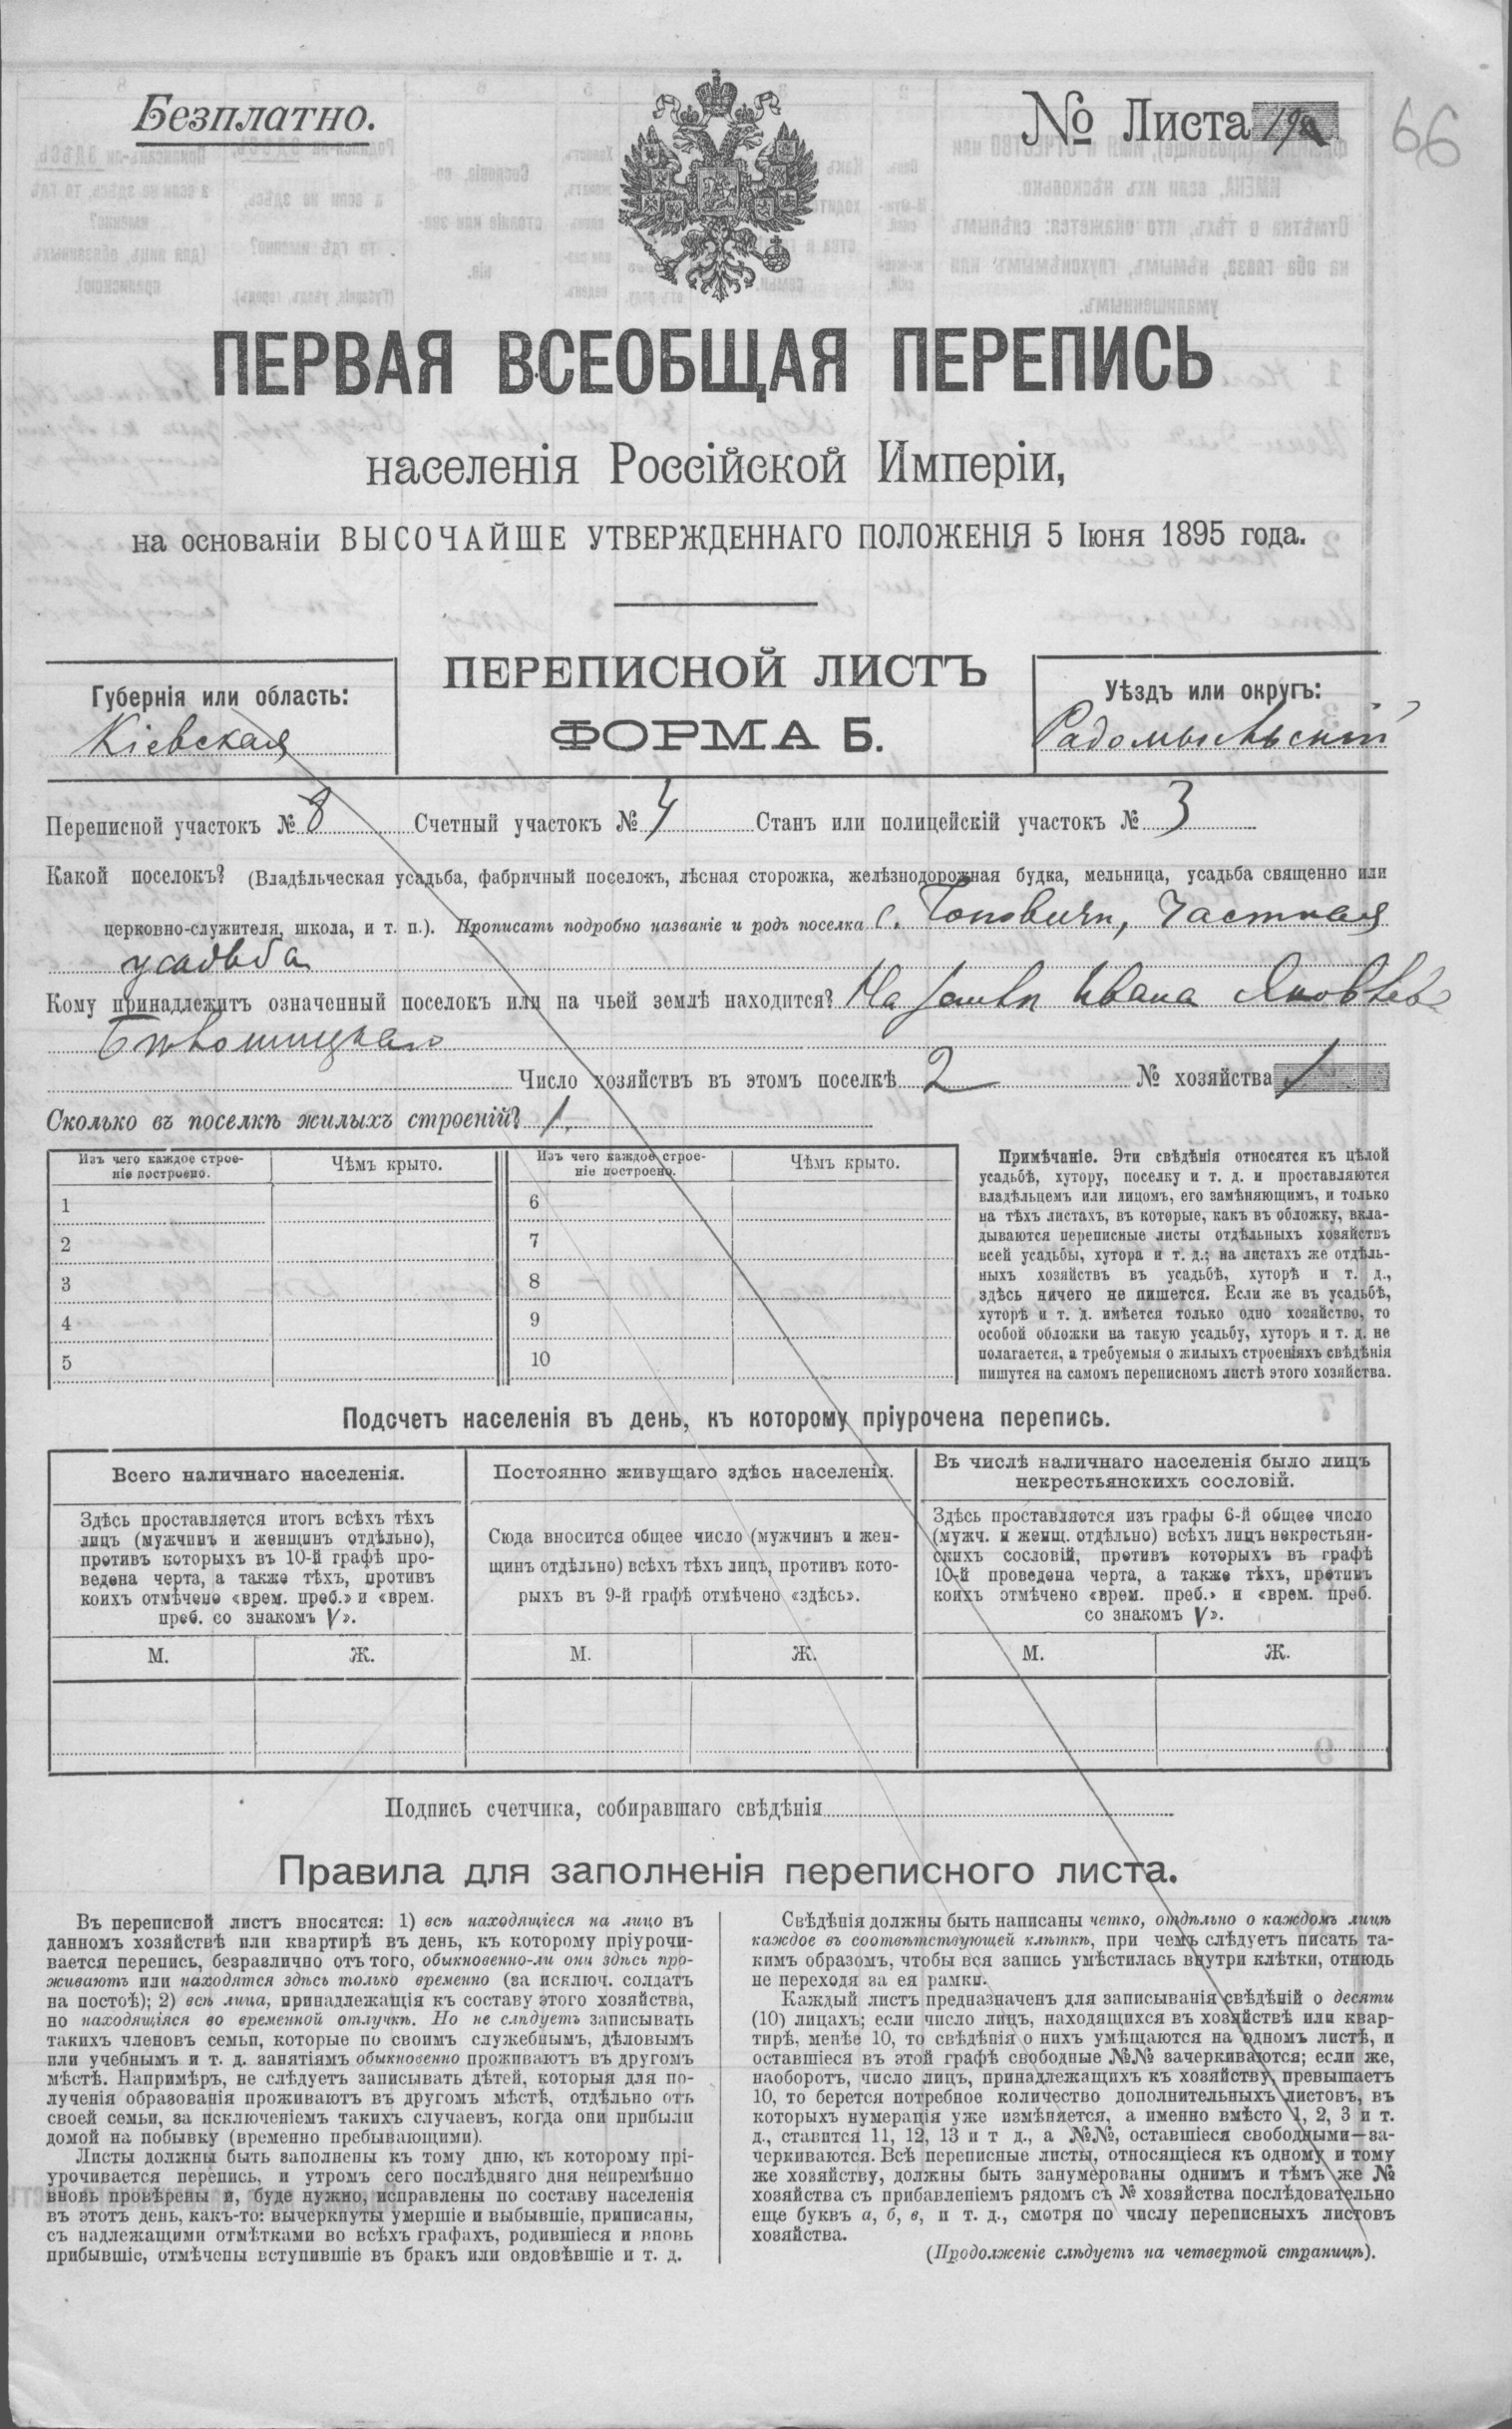 Безплатно.
№ Листа 19а
66
ПЕРВАЯ ВСЕОБЩАЯ ПЕРЕПИСЬ
населенія Россійской Имперіи,
на основаніи ВЫСОЧАЙШЕ УТВЕРЖДЕННАГО ПОЛОЖЕНІЯ 5 Іюня 1895 года.
ПЕРЕПИСНОЙ ЛИСТЪ
ФОРМА Б.
Губернія или область:
Кіевская
Уѣздъ или округъ:
Радомысльскій
Переписной участокъ № 8 Счетный участокъ № 4 Станъ или полицейскій участокъ № 3
Какой поселокъ? (Владѣльческая усадьба, фабричный поселокъ, лѣсная сторожка, желѣзнодорожная будка, мельница, усадьба священно или
церковно-служителя, школа, и т. п.). Прописать подробно названіе и родъ поселка с. Частная
усадьба
Кому принадлежитъ означенный поселокъ или на чьей землѣ находится? На земли Ивана Яковлева
Число хозяйствъ въ этомъ поселкѣ 2 № хозяйства 1
Сколько въ поселкѣ жилыхъ строеній? 1.
Изъ чего каждое строе-
ніе построено.
Чѣмъ крыто.
Изъ чего каждое строе-
ніе построено.
Чѣмъ крыто.
1 6
2 7
3 8
4 9
5 10
Примѣчаніе. Эти свѣдѣнія относятся къ цѣлой
усадьбѣ, хутору, поселку и т. д. и проставляются
владѣльцемъ или лицомъ, его замѣняющимъ, и только
на тѣхъ листахъ, въ которые, какъ въ обложку, вкла-
дываются переписные листы отдѣльныхъ хозяйствъ
всей усадьбы, хутора и т. д.; на листахъ же отдѣль-
ныхъ хозяйствъ въ усадьбѣ, хуторѣ и т. д.,
здѣсь ничего не пишется. Если же въ усадьбѣ,
хуторѣ и т. д. имѣется только одно хозяйство, то
особой обложки на такую усадьбу, хуторъ и т. д. не
полагается, а требуемыя о жилыхъ строеніяхъ свѣдѣнія
пишутся на самомъ переписномъ листѣ этого хозяйства.
Подсчетъ населенія въ день, къ которому пріурочена перепись.
Всего наличнаго населенія.
Здѣсь проставляется итогъ всѣхъ тѣхъ
лицъ (мужчинъ и женщинъ отдѣльно),
противъ которыхъ въ 10-й графѣ про-
ведена черта, а также тѣхъ, противъ
коихъ отмѣчено «врем. преб.» и «врем.
преб. со знакомъ V».
М. Ж.
Постоянно живущаго здѣсь населенія.
Сюда вносится общее число (мужчинъ и жен-
щинъ отдѣльно) всѣхъ тѣхъ лицъ, противъ кото-
рыхъ въ 9-й графѣ отмѣчено «здѣсь».
М. Ж.
Въ числѣ наличнаго населенія было лицъ
некрестьянскихъ сословій.
Здѣсь проставляется изъ графы 6-й общее число
(мужч. и женщ. отдѣльно) всѣхъ лицъ некрестьян-
скихъ сословій, противъ которыхъ въ графѣ
10-й проведена черта, а также тѣхъ, противъ
коихъ отмѣчено «врем. преб.» и «врем. преб.
со знакомъ V».
М. Ж.
Подпись счетчика, собиравшаго свѣдѣнія
Правила для заполненія переписного листа.
Въ переписной листъ вносятся: 1) всѣ находящіеся на лицо въ
данномъ хозяйствѣ или квартирѣ въ день, къ которому пріурочи-
вается перепись, безразлично отъ того, обыкновенно-ли они здѣсь про-
живаютъ или находятся здѣсь только временно (за исключ. солдатъ
на постоѣ); 2) всѣ лица, принадлежащія къ составу этого хозяйства,
но находящіяся во временной отлучкѣ. Но не слѣдуетъ записывать
такихъ членовъ семьи, которые по своимъ служебнымъ, дѣловымъ
или учебнымъ и т. д. занятіямъ обыкновенно проживаютъ въ другомъ
мѣстѣ. Напримѣръ, не слѣдуетъ записывать дѣтей, которыя для по-
лученія образованія проживаютъ въ другомъ мѣстѣ, отдѣльно отъ
своей семьи, за исключеніемъ такихъ случаевъ, когда они прибыли
домой на побывку (временно пребывающими).
Листы должны быть заполнены къ тому дню, къ которому прі-
урочивается перепись, и утромъ сего послѣдняго дня непремѣнно
вновь провѣрены и, буде нужно, исправлены по составу населенія
въ этотъ день, какъ-то: вычеркнуты умершіе и выбывшіе, приписаны,
съ надлежащими отмѣтками во всѣхъ графахъ, родившіеся и вновь
прибывшіе, отмѣчены вступившіе въ бракъ или овдовѣвшіе и т. д.
Свѣдѣнія должны быть написаны четко, отдѣльно о каждомъ лицѣ
каждое въ соотвѣтствующей клѣткѣ, при чемъ слѣдуетъ писать та-
кимъ образомъ, чтобы вся запись умѣстилась внутри клѣтки, отнюдь
не переходя за ея рамки.
Каждый листъ предназначенъ для записыванія свѣдѣній о десяти
(10) лицахъ; если число лицъ, находящихся въ хозяйствѣ или квар-
тирѣ, менѣе 10, то свѣдѣнія о нихъ умѣщаются на одномъ листѣ, и
оставшіеся въ этой графѣ свободные №№ зачеркиваются; если же,
наоборотъ, число лицъ, принадлежащихъ къ хозяйству, превышаетъ
10, то берется потребное количество дополнительныхъ листовъ, въ
которыхъ нумерація уже измѣняется, а именно вмѣсто 1, 2, 3 и т.
д., ставится 11, 12, 13 и т д., а №№, оставшіеся свободными—за-
черкиваются. Всѣ переписные листы, относящіеся къ одному и тому
же хозяйству, должны быть занумерованы однимъ и тѣмъ же №
хозяйства съ прибавленіемъ рядомъ съ № хозяйства послѣдовательно
еще буквъ а, б, в, и т. д., смотря по числу переписныхъ листовъ
хозяйства.
(Продолженіе слѣдуетъ на четвертой страницѣ).